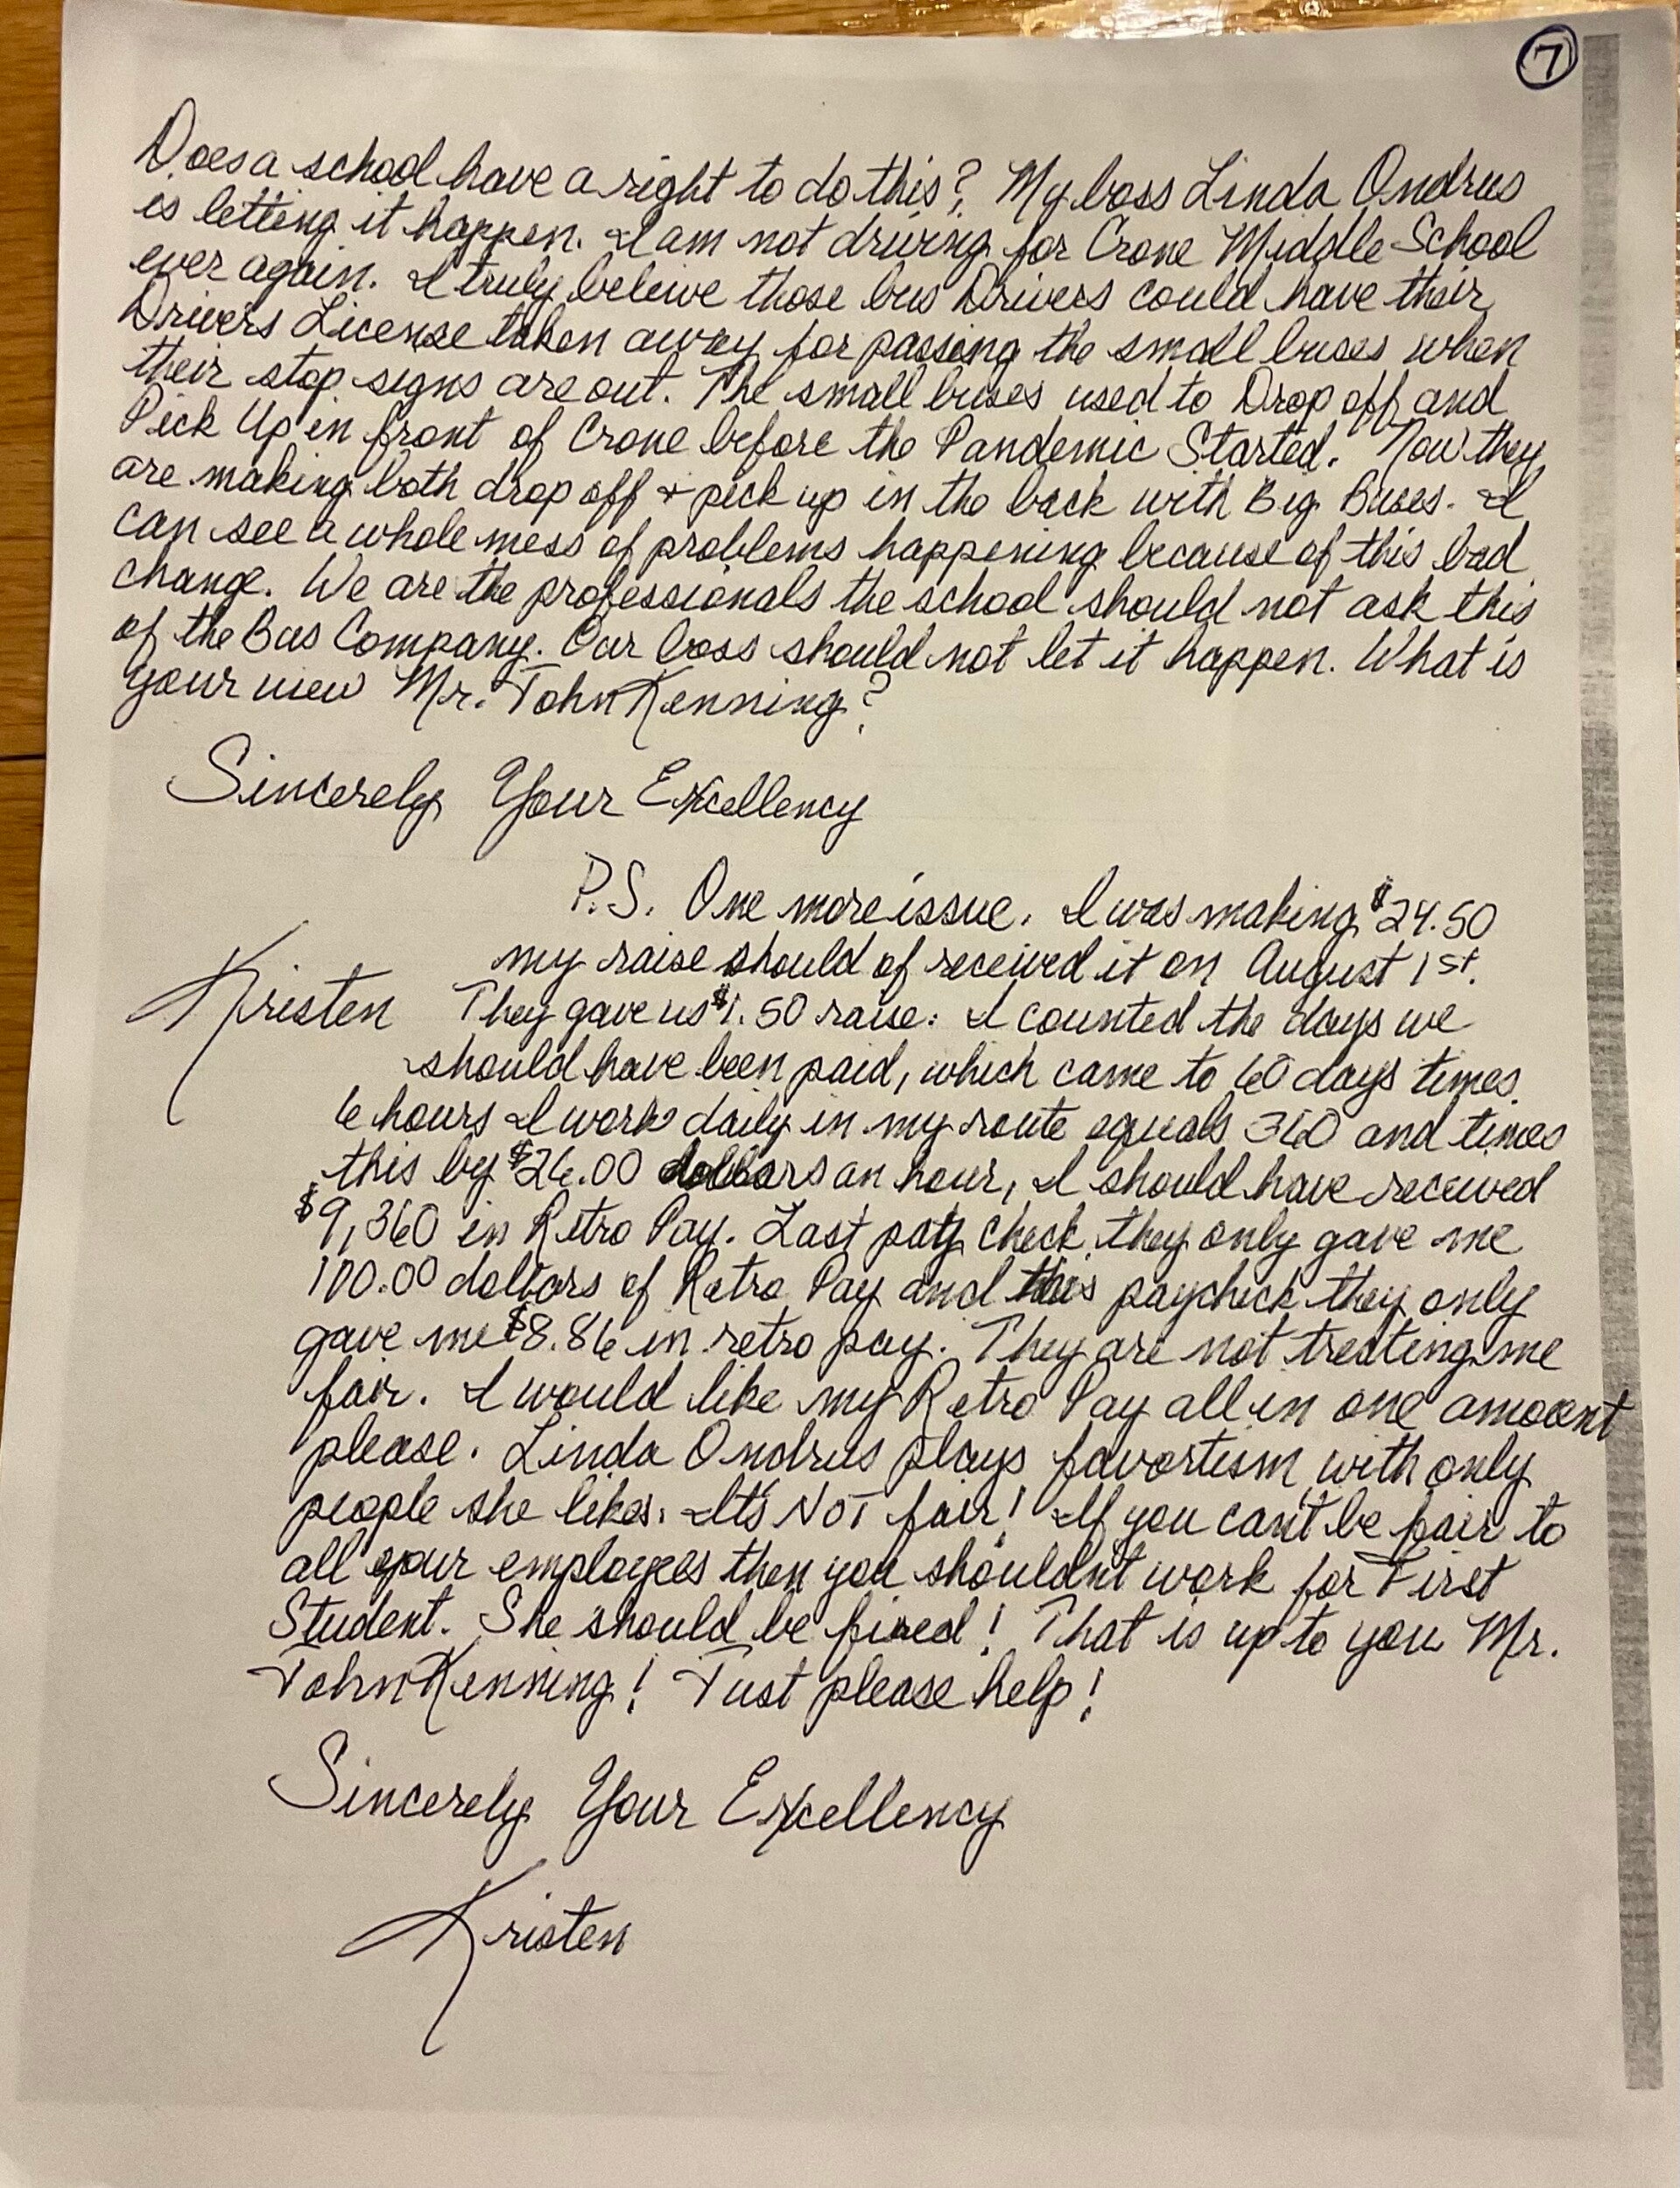 7
Does a school have a right to do this? My boss Linda Ondrus
is letting it happen. I am not driving for Crone Middle School
ever again. I truly beleive those bus Drivers could have their
Drivers License taken away for passing the small buses when
their stop signs are out. The small buses used to Drop off and
Pick Up in front of Crone before the Pandemic Started. Now they
are making both drop off + pick up in the back with Big Buses. I
can see a whole mess of problems happening because of this bad
change. We are the professionals the school should not ask this
of the Bus Company. Our boss should not let it happen. What is
your view Mr. John Kenning?
Sincerely Your Excellency
P.S. One more issue. I was making $24.50
my raise should of received it on August 1st.
Kristen They gave us $1.50 raise. I counted the days we
should have been paid, which came to 60 days times
6 hours I work daily in my route equals 360 and times
this by $26.00 dollars an hour, I should have received
$9,360 in Retro Pay. Last pay check they only gave me
100.00 dollars of Retro Pay and this paycheck they only
gave me $8.86 in retro pay. They are not treating me
fair. I would like my Retro Pay all in one amount
please. Linda Ondrus plays favortism with only
people she likes. It's NOT fair! If you can't be fair to
all your employees then you shouldn't work for First
Student. She should be fired! That is up to you Mr.
John Kenning! Just please help!
Sincerely Your Excellency
Kristen